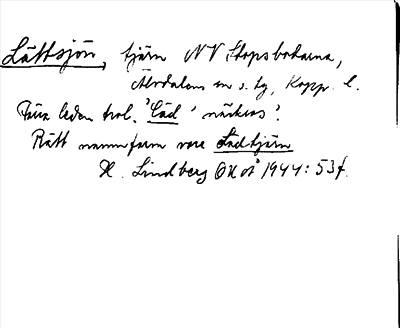 Lättsjön, tjärn NV Stopsbodarna,
Älvdalens sn o. tg, Kopp. l.
Förra leden trol. 'Läd' 'näckros'.
Rätt namnform vore Lädtjärn
K. Lindberg OUoÅ 1944: 53 f.